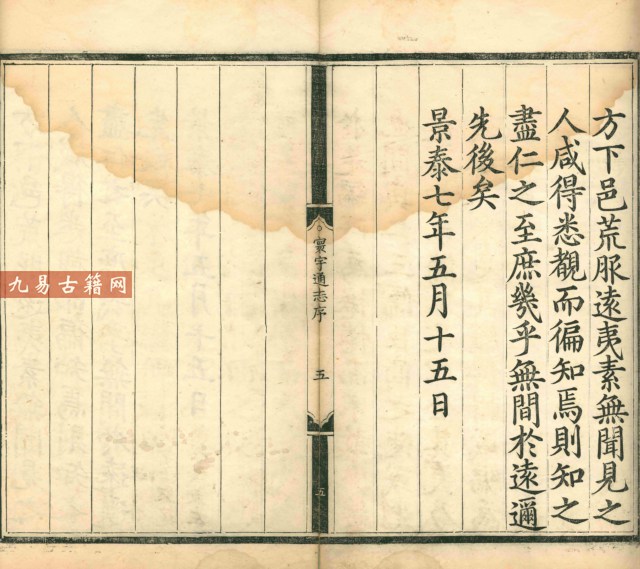 方下邑荒服遠夷素無聞見之
人咸得悉觀而徧知焉則知之
盡仁之至庶幾乎無間於遠邇
先後矣
景泰七年五月十五日
寰宇通志序
五
五
九易古籍网